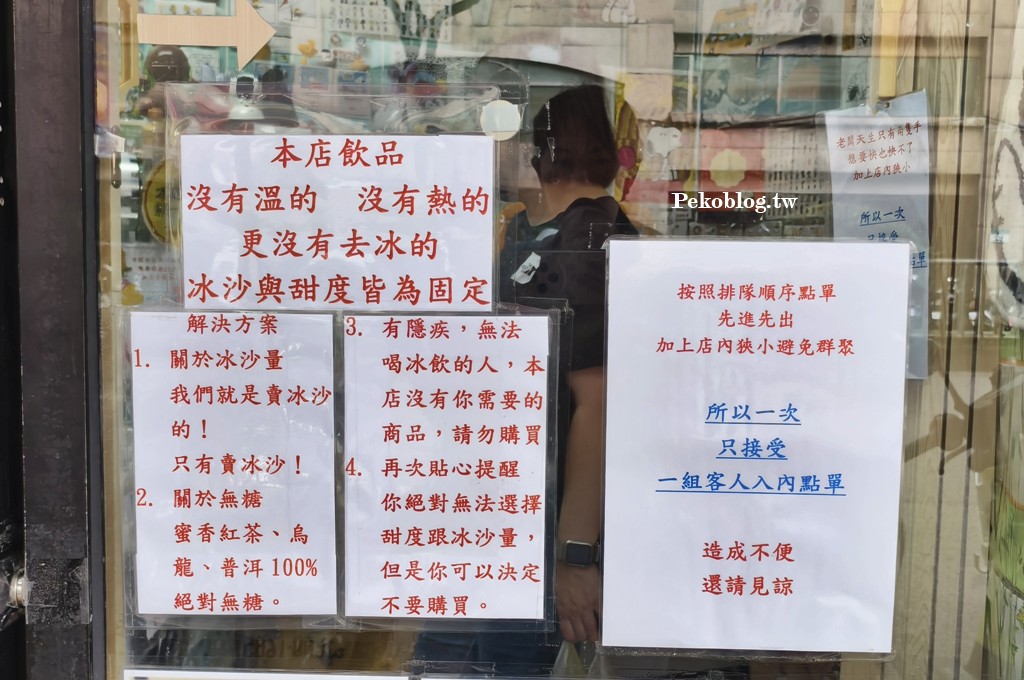 本店飲品
沒有溫的　沒有熱的
更沒有去冰的
冰沙與甜度皆為固定
解決方案
1. 關於冰沙量
我們就是賣冰沙
的！
只有賣冰沙！
2. 關於無糖
蜜香紅茶、烏
龍、普洱100%
絕對無糖。
3. 有隱疾，無法
喝冰飲的人，本
店沒有你需要的
商品，請勿購買
4. 再次貼心提醒
你絕對無法選擇
甜度跟冰沙量，
但是你可以決定
不要購買。
Pekoblog.tw
按照排隊順序點單
先進先出
加上店內狹小避免群聚
所以一次
只接受
一組客人入內點單
造成不便
還請見諒
老闆天生只有兩隻手
想要快也快不了
加上店內狹小
所以一次
只接受